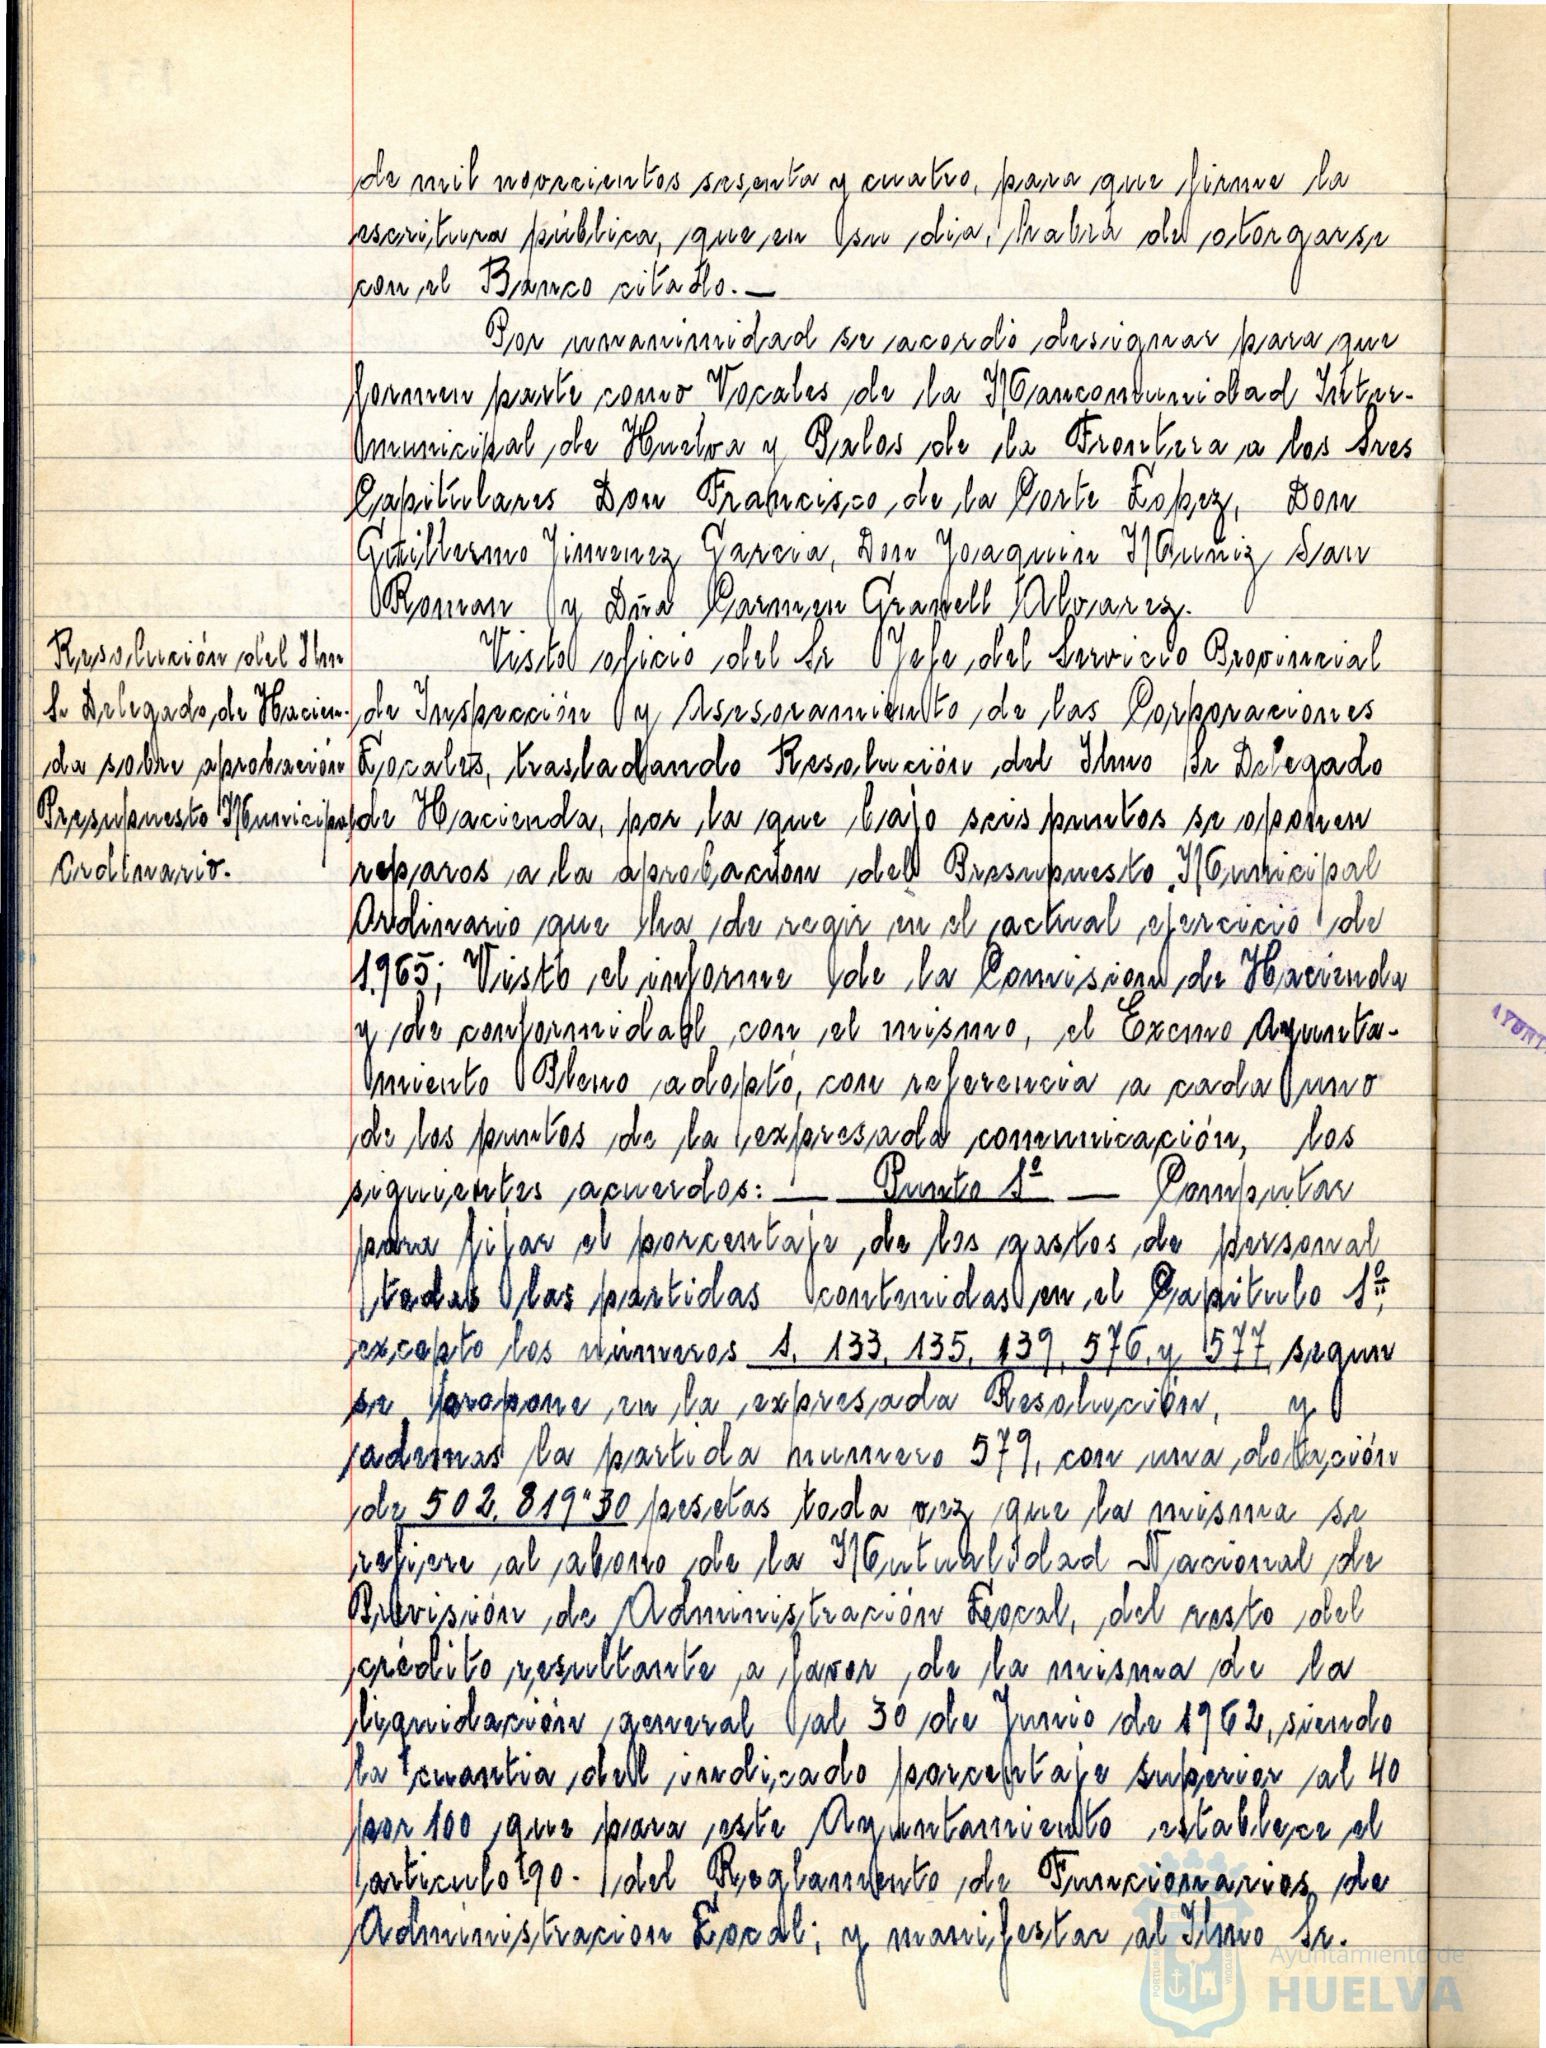 de mil novecientos sesenta y cuatro, para que firme la
escritura pública, que en su dia, habrá de otorgarse
con el Banco citado. —
Por unanimidad se acordó designar para que
formen parte como Vocales de la Mancomunidad Inter-
municipal de Huelva y Palos de la Frontera a los Sres
Capitulares Don Francisco de la Corte Lopez, Don
Guillermo Jimenez Garcia, Don Joaquin Muñiz San
Roman y Dña Carmen Granell Alvarez.
Resolución del Ilm
Sr Delegado de Hacien-
da sobre aprobación
Presupuesto Municipal
Ordinario.
Visto oficio del Sr Jefe del Servicio Provincial
de Inspección y Asesoramiento de las Corporaciones
Locales, trasladando Resolución del Ilmo Sr Delegado
de Hacienda, por la que bajo seis puntos se oponen
reparos a la aprobación del Presupuesto Municipal
Ordinario que ha de regir en el actual ejercicio de
1.965; Visto el informe de la Comision de Hacienda
y de conformidad con el mismo, el Excmo Ayunta-
miento Pleno adoptó, con referencia a cada uno
de los puntos de la expresada comunicación, los
siguientes acuerdos: — Punto 1º — Computar
para fijar el porcentaje de los gastos de personal
todas las partidas contenidas en el Capitulo 1º,
excepto los números 1, 133, 135, 139, 576, y 577, segun
se propone en la expresada Resolución, y
ademas la partida numero 579, con una dotación
de 502.819"30 pesetas toda vez que la misma se
refiere al abono de la Mutualidad Nacional de
Previsión de Administración Local, del resto del
crédito resultante a favor de la misma de la
liquidación general al 30 de Junio de 1962, siendo
la cuantia del indicado porcentaje superior al 40
por 100 que para este Ayuntamiento establece el
articulo 90. del Reglamento de Funcionarios de
Administracion Local; y manifestar al Ilmo Sr.
Ayuntamiento de
HUELVA